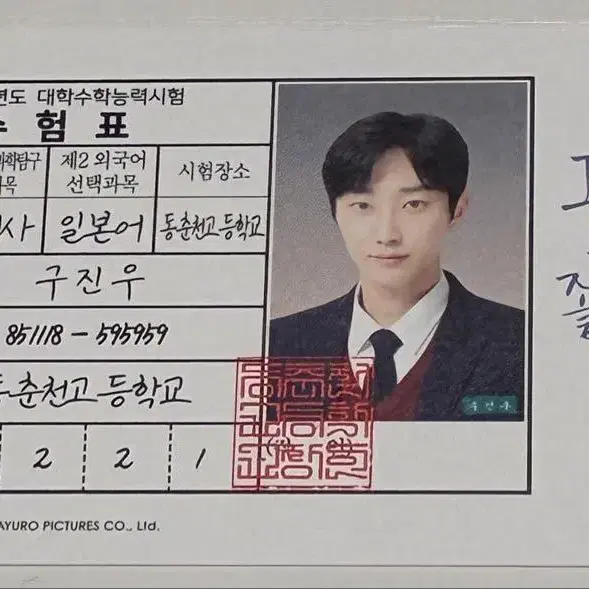 년도 대학수학능력시험
수 험 표
과학탐구 제2 외국어 시험장소
과목 선택과목
사 일본어 동춘천고등학교
구진우
851118 - 595959
동춘천고등학교
2 2 1
구진우
AYURO PICTURES CO., Ltd.